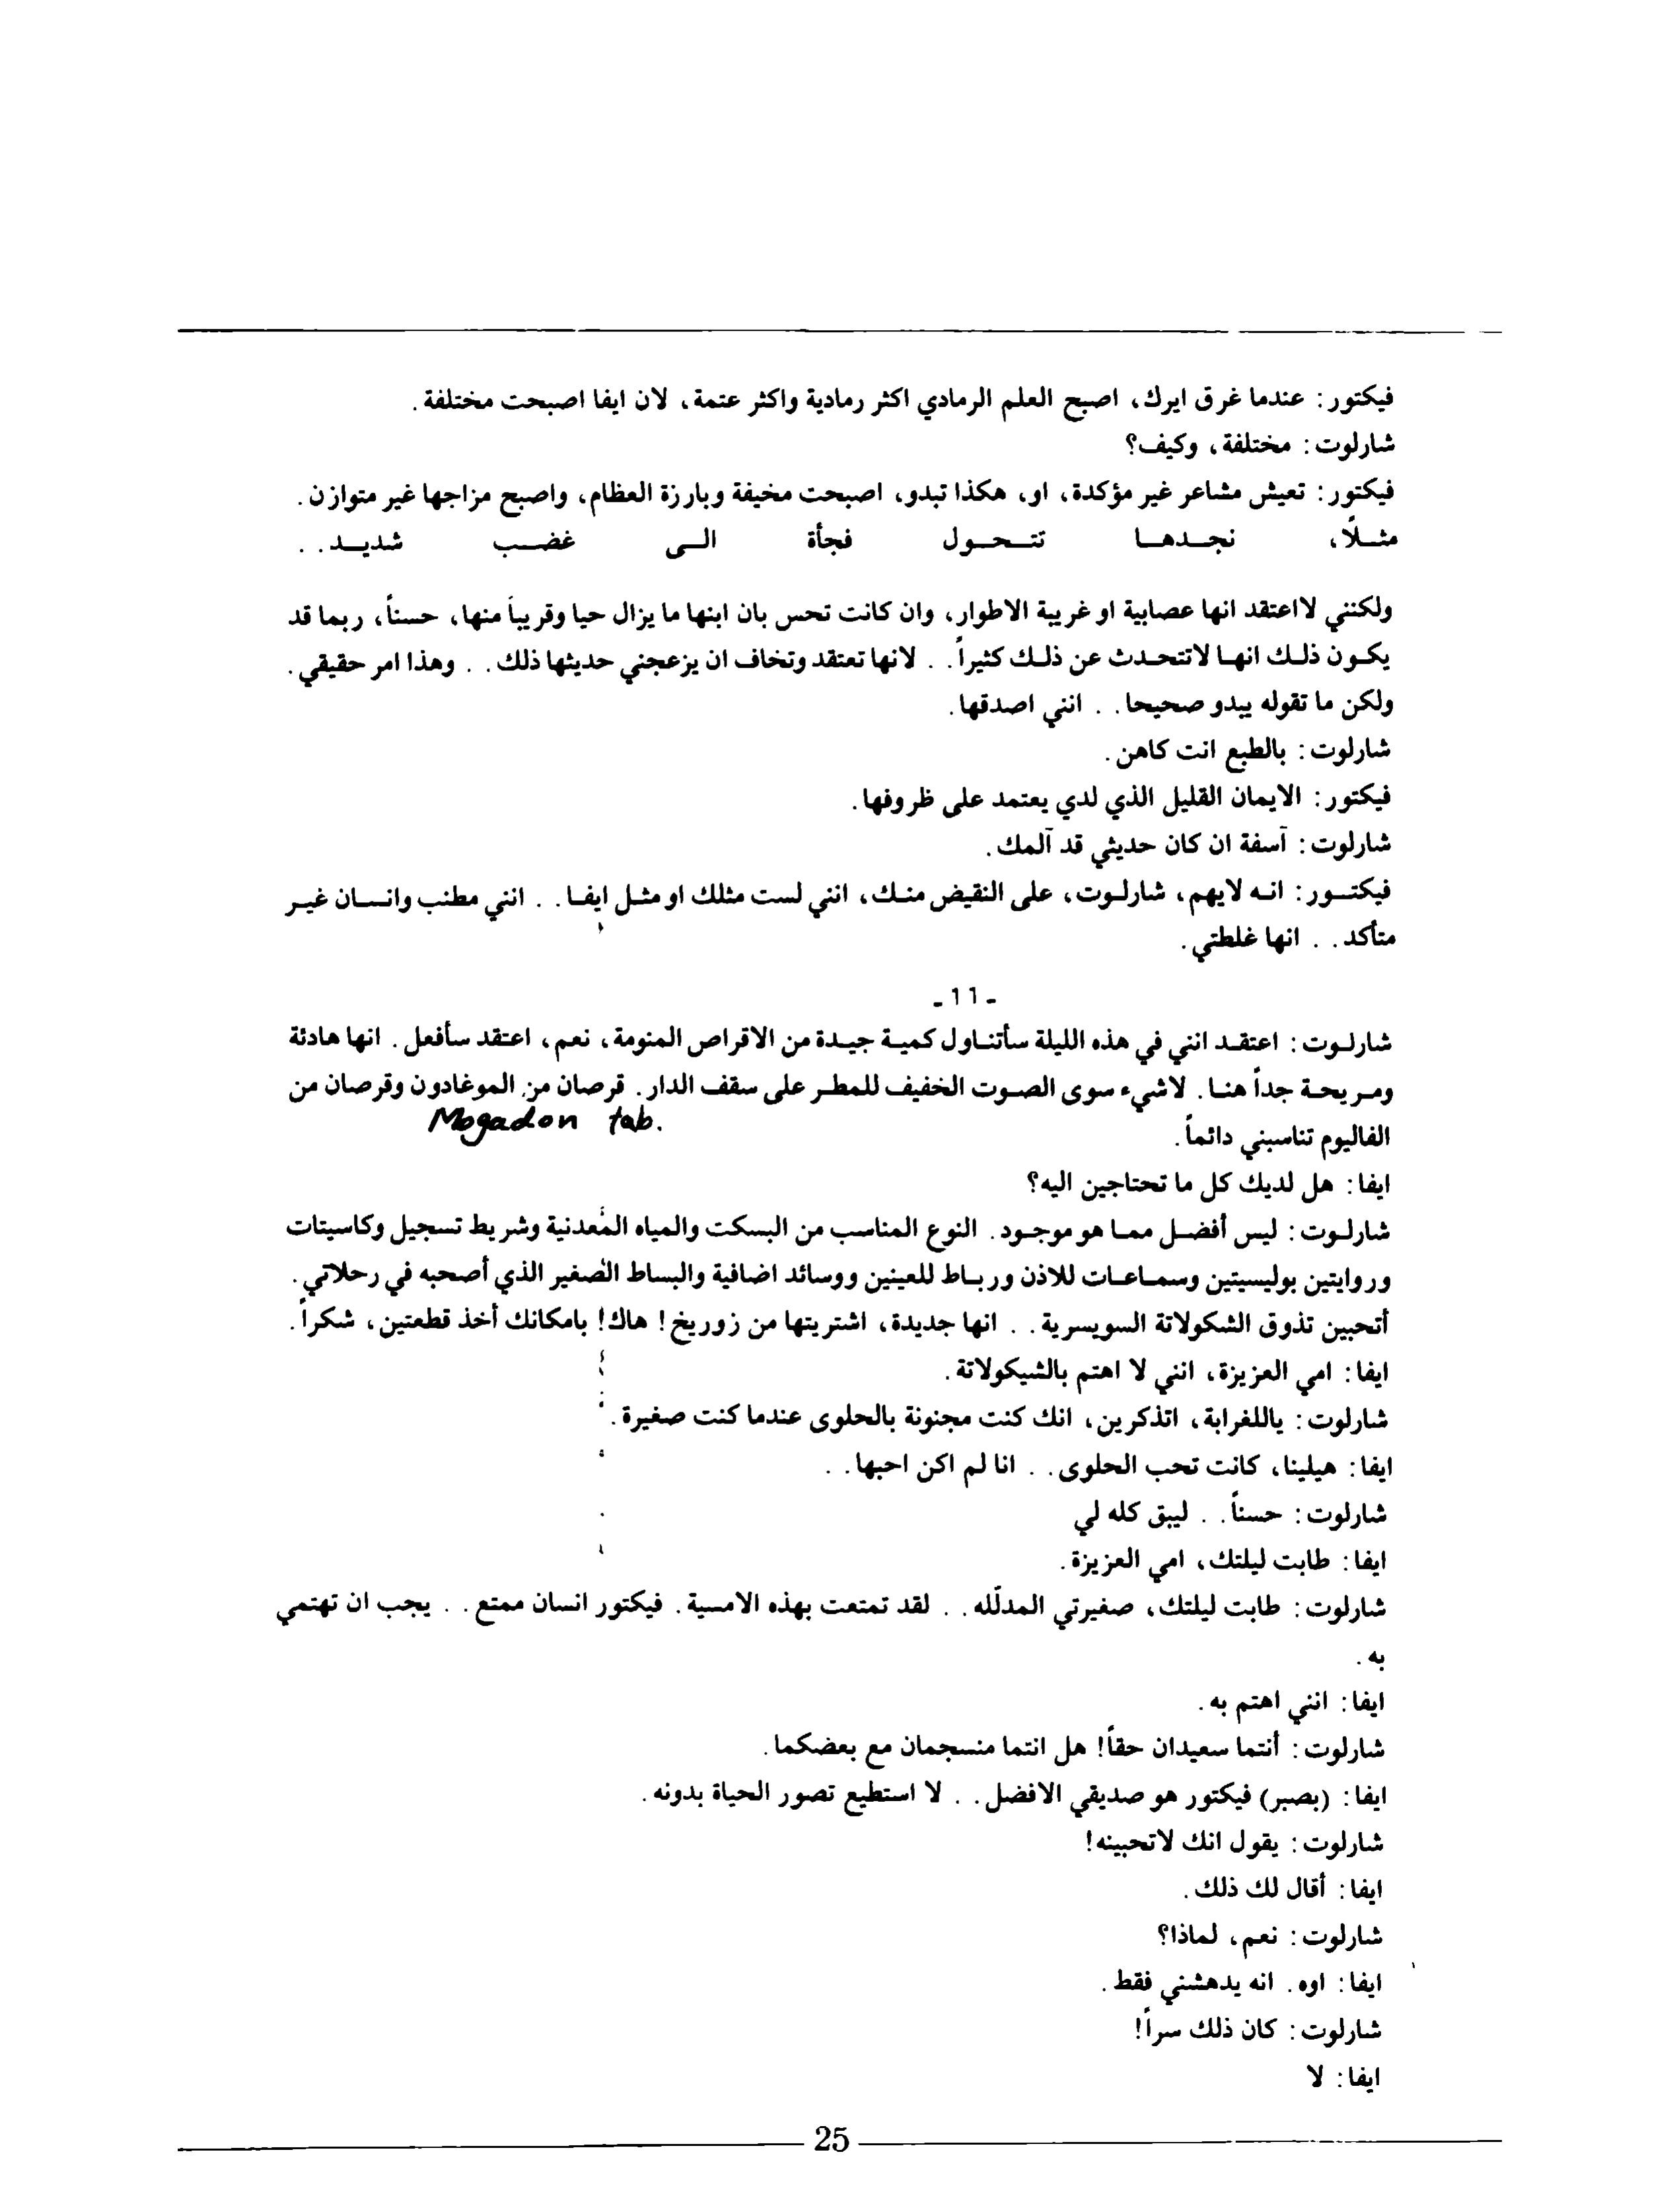 فيكتور: عندما غرق ايرك، اصبح العلم الرمادي اكثر رمادية واكثر عتمة، لان ايفا اصبحت مختلفة.
شارلوت: مختلفة، وكيف؟
فيكتور: تعيش مشاعر غير مؤكدة، او، هكذا تبدو، اصبحت مخيفة وبارزة العظام، واصبح مزاجها غير متوازن.
مثلاً، نجدها تتحول فجأة الى غضب شديد. .
ولكنني لااعتقد انها عصابية او غريبة الاطوار، وان كانت تحس بان ابنها ما يزال حيا وقريباً منها، حسناً، ربما قد
يكون ذلك انها لاتتحدث عن ذلك كثيراً. . لانها تعتقد وتخاف ان يزعجني حديثها ذلك. . وهذا امر حقيقي.
ولكن ما تقوله يبدو صحيحا. . انني اصدقها.
شارلوت: بالطبع انت كاهن.
فيكتور: الايمان القليل الذي لدي يعتمد على ظروفها.
شارلوت: آسفة ان كان حديثي قد آلمك.
فيكتور: انه لايهم، شارلوت، على النقيض منك، انني لست مثلك او مثل ايفا. . انني مطنب وانسان غير
متأكد. . انها غلطتي.
- 11 -
شارلوت: اعتقد انني في هذه الليلة سأتناول كمية جيدة من الاقراص المنومة، نعم، اعتقد سأفعل. انها هادئة
ومريحة جداً هنا. لاشيء سوى الصوت الخفيف للمطر على سقف الدار. قرصان من الموغادون وقرصان من
Mogadon tab.
الفاليوم تناسبني دائماً.
ايفا: هل لديك كل ما تحتاجين اليه؟
شارلوت: ليس أفضل مما هو موجود. النوع المناسب من البسكت والمياه المعدنية وشريط تسجيل وكاسيتات
وروايتين بوليسيتين وسماعات للاذن ورباط للعينين ووسائد اضافية والبساط الصغير الذي أصحبه في رحلاتي.
أتحبين تذوق الشكولاتة السويسرية. . انها جديدة، اشتريتها من زوريخ! هاك! بامكانك أخذ قطعتين، شكراً.
ايفا: امي العزيزة، انني لا اهتم بالشيكولاتة.
شارلوت: ياللغرابة، اتذكرين، انك كنت مجنونة بالحلوى عندما كنت صغيرة.
ايفا: هيلينا، كانت تحب الحلوى. . انا لم اكن احبها. .
شارلوت: حسناً. . ليبق كله لي
ايفا: طابت ليلتك، امي العزيزة.
شارلوت: طابت ليلتك، صغيرتي المدلّله. . لقد تمتعت بهذه الامسية. فيكتور انسان ممتع. . يجب ان تهتمي
به.
ايفا: انني اهتم به.
شارلوت: أنتما سعيدان حقاً! هل انتما منسجمان مع بعضكما.
ايفا: (بصبر) فيكتور هو صديقي الافضل. . لا استطيع تصور الحياة بدونه.
شارلوت: يقول انك لاتحبينه!
ايفا: أقال لك ذلك.
شارلوت: نعم، لماذا؟
ايفا: اوه. انه يدهشني فقط.
شارلوت: كان ذلك سراً!
ايفا: لا
25